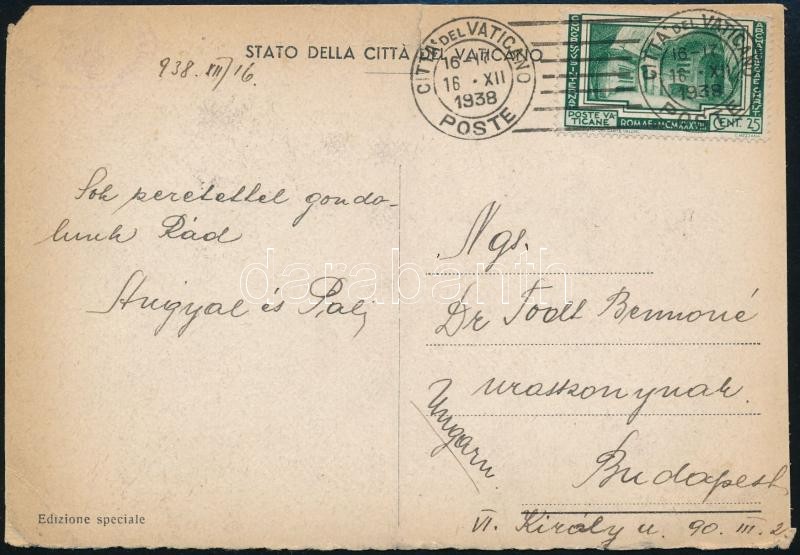 STATO DELLA CITTÀ DEL VATICANO
938. XII/16.
CITTÀ DEL VATICANO
16-17
16 · XII
1938
POSTE
CITTÀ DEL VATICANO
16-17
16 · XII
1938
POSTE
POSTE VA
TICANE
ROMAE·MCMXXXVIII
CENT. 25
Sok szeretettel gondo-
lunk Rád
Angyal és Pali
Ngs.
Dr Todt Bennóné
urasszonynak.
Ungarn
Budapest
VI. Király u. 90. III. 2.
darabanth
Edizione speciale